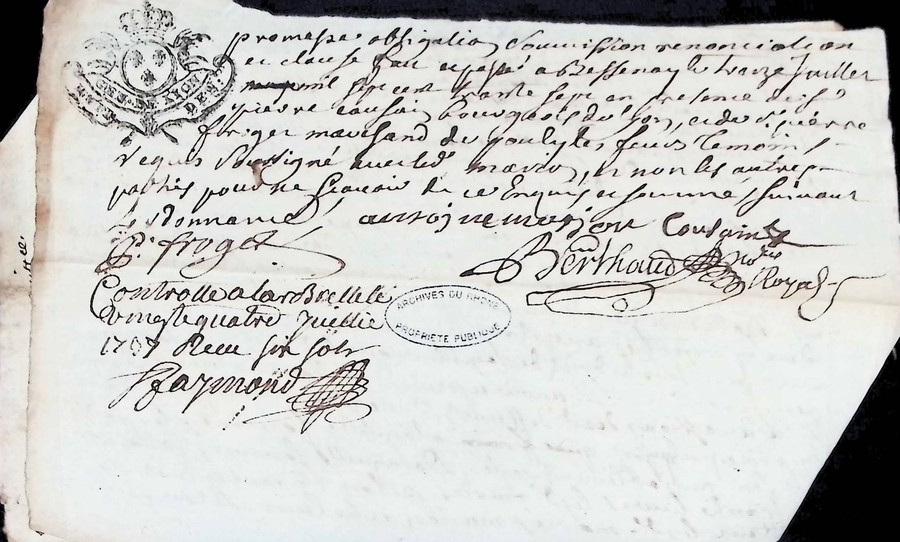 promesse obligation soumission renonciation
et clause fait et passé a Bessenay le traize Juillet
mil sept cent trante sept en presence de sr
pierre cousain Bourgeois de Lyon, et de sr pierre
froget marchand de temoins
requis soussigné avec led. marion, et non les autres
parties pour ne scavoir de ce Enquis et sommé suivant
Lordonnance antoine marion Cousain
P. froget
Berthaud nore Royal
Controllé a larBrelle le
vingt quatre Juillie
1737 Receu six sols
Raymond
ARCHIVES DU RHONE
PROPRIÉTÉ PUBLIQUE
GEN. DE LYON